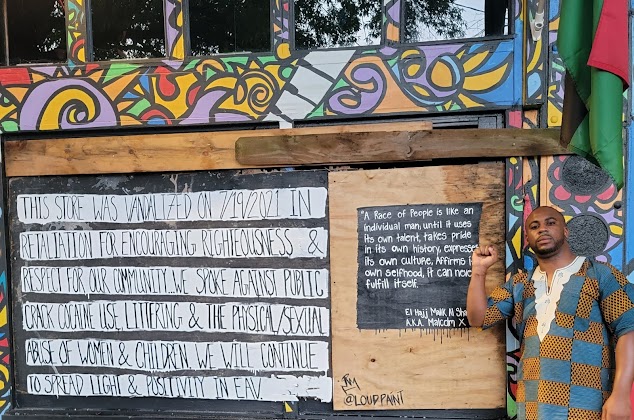 THIS STORE WAS VANDALIZED ON 7/19/2021 IN
RETALIATION FOR ENCOURAGING RIGHTEOUSNESS &
RESPECT FOR OUR COMMUNITY. WE SPOKE AGAINST PUBLIC
CRACK COCAINE USE, LITTERING & THE PHYSICAL/SEXUAL
ABUSE OF WOMEN & CHILDREN. WE WILL CONTINUE
TO SPREAD LIGHT & POSITIVITY IN EAV.
"A Race of People is like an
individual man, until it uses
its own talent, takes pride
in its own history, expresses
its own culture, Affirms
own selfhood, it can never
fulfill itself.
El Hajj Malik
A.K.A. Malcolm X
@LOUDPAINT